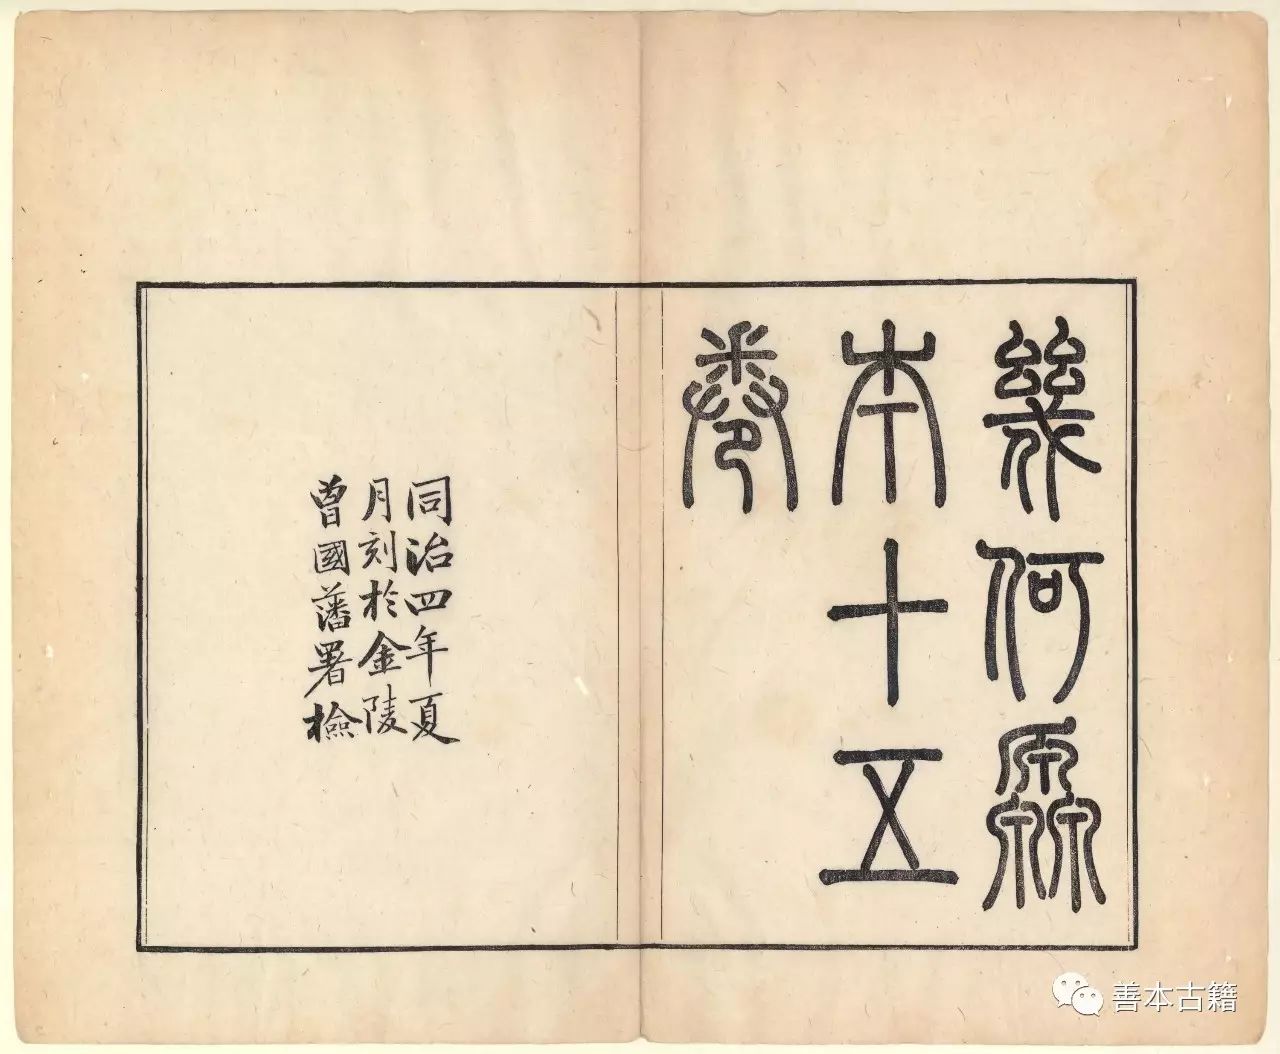 幾何原
本十五
卷
同治四年夏
月刻於金陵
曾國藩署檢
善本古籍